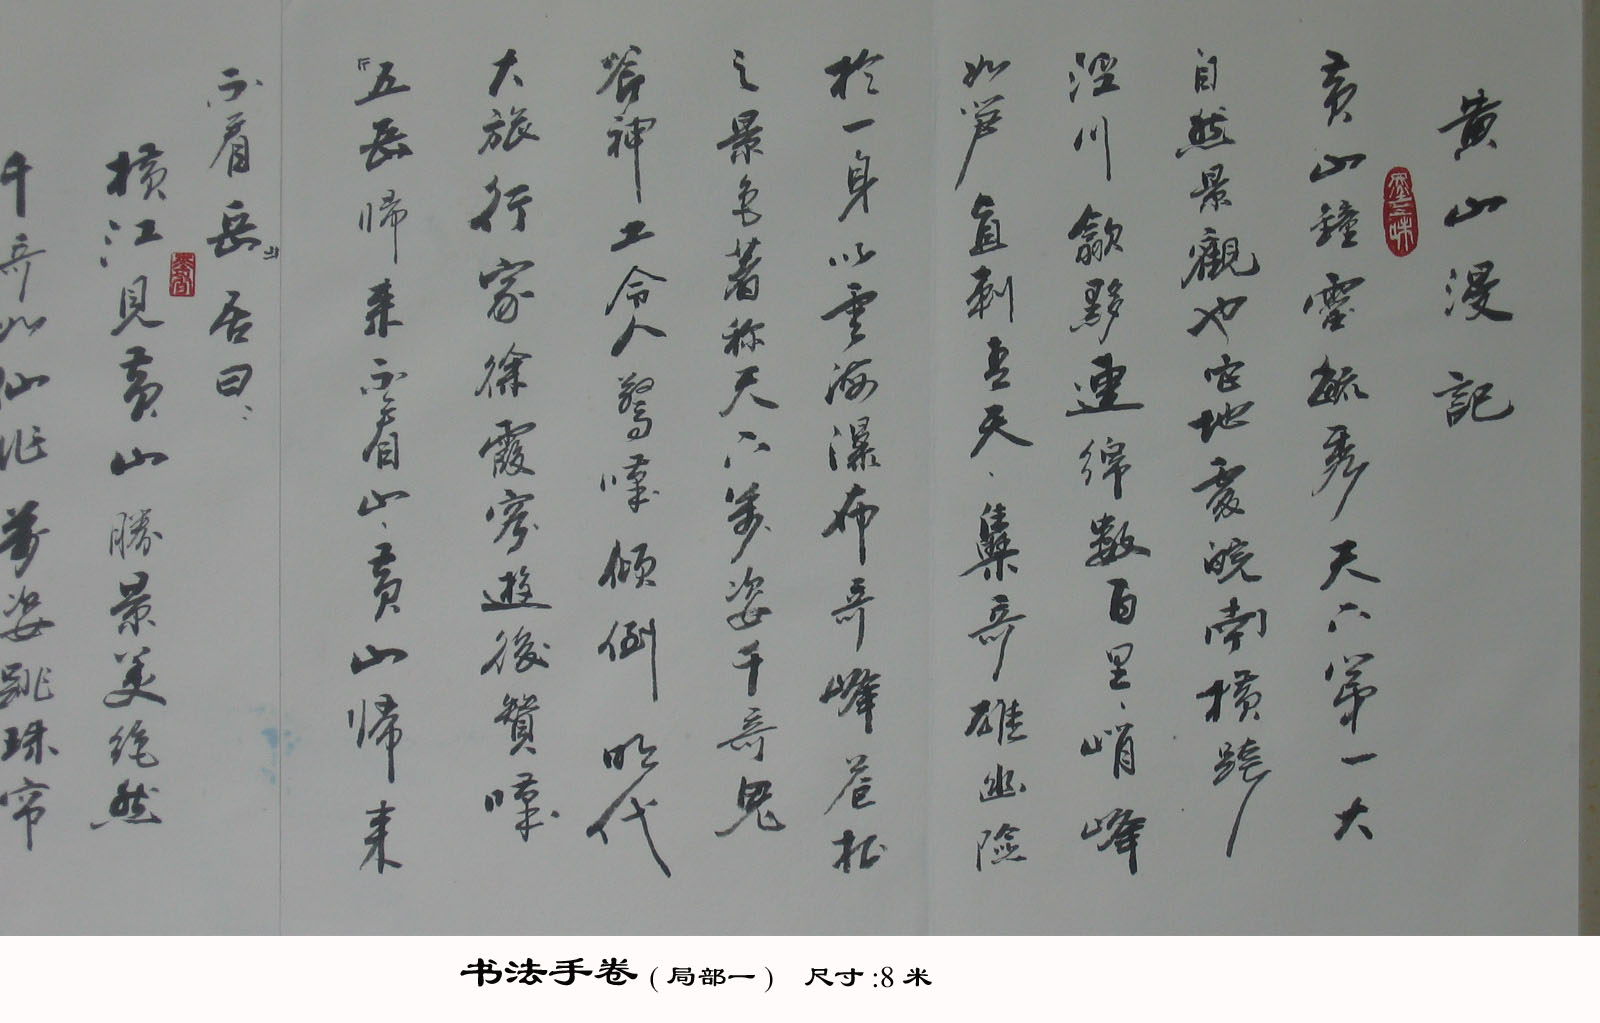 黄山漫記
黄山鐘靈毓秀天下第一大
自然景觀也它地處皖南横跨
涇川歙黟連綿數百里、峭峰
如笋直刺天、集奇雄幽險
於一身以雲海瀑布奇峰苍松
之景色著称天下萬姿千奇鬼
斧神工令人驚嘆傾倒明代
大旅行家徐霞客遊後贊嘆
「五岳歸来不看山、黄山歸来
不看岳」居曰：
横江見黄山勝景美绝然
千奇如仙作萬姿跳珠帘
书法手卷(局部一) 尺寸:8米